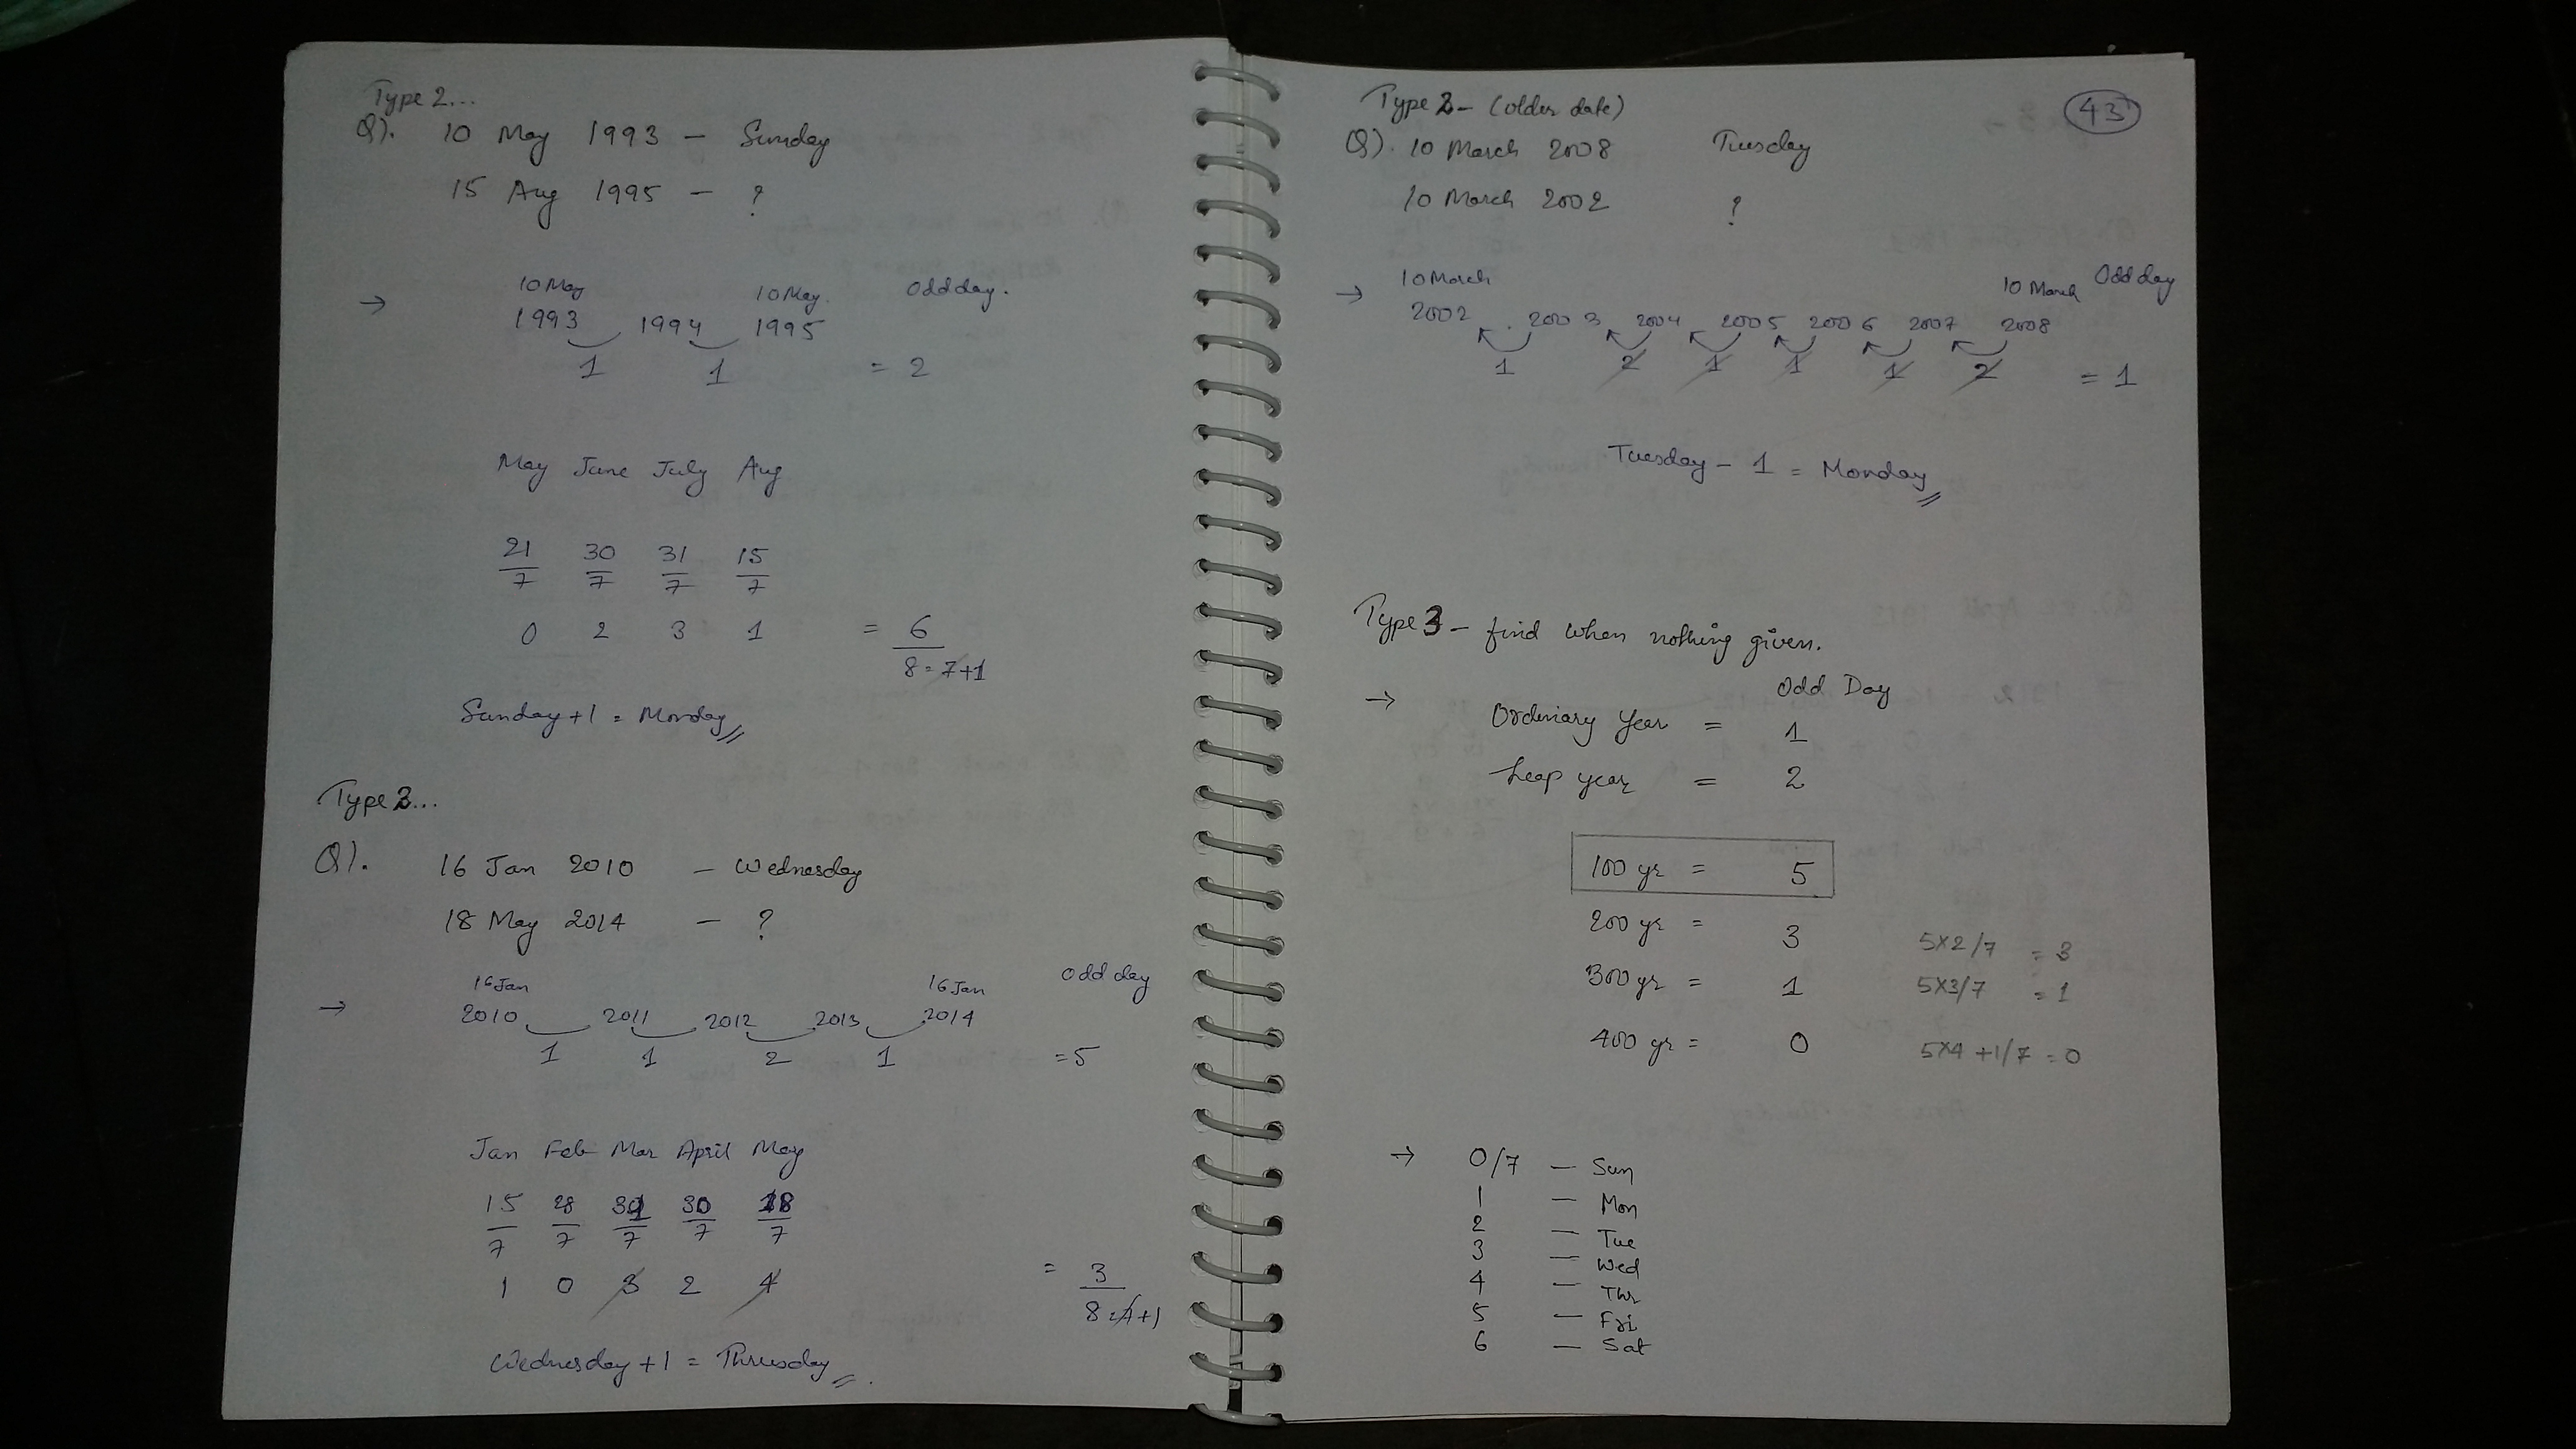 Type 2...
Q). 10 May 1993 - Sunday
15 Aug 1995 - ?
→ 10 May 10 May. Odd day.
1993 1994 1995
1 1 = 2
May June July Aug
21/7 30/7 31/7 15/7
0 2 3 1 = 6
8 = 7+1
Sunday + 1 = Monday
Type 2...
Q). 16 Jan 2010 - Wednesday
18 May 2014 - ?
16 Jan 16 Jan Odd day
→ 2010 2011 2012 2013 2014
1 1 2 1 = 5
Jan Feb Mar April May
15/7 28/7 31/7 30/7 18/7
1 0 3 2 4 = 3
8 = 7+1
Wednesday + 1 = Thrusday
43
Type 2 - (older date)
Q). 10 March 2008 Tuesday
10 March 2002 ?
→ 10 March 10 March Odd day
2002 2003 2004 2005 2006 2007 2008
1 2 1 1 1 2 = 1
Tuesday - 1 = Monday
Type 3 - find when nothing given.
→ Odd Day
Ordinary Year = 1
Leap year = 2
100 yr = 5
200 yr = 3 5X2/7 = 3
300 yr = 1 5X3/7 = 1
400 yr = 0 5X4 +1/7 = 0
→ 0/7 - Sun
1 - Mon
2 - Tue
3 - Wed
4 - Thr
5 - Fri
6 - Sat